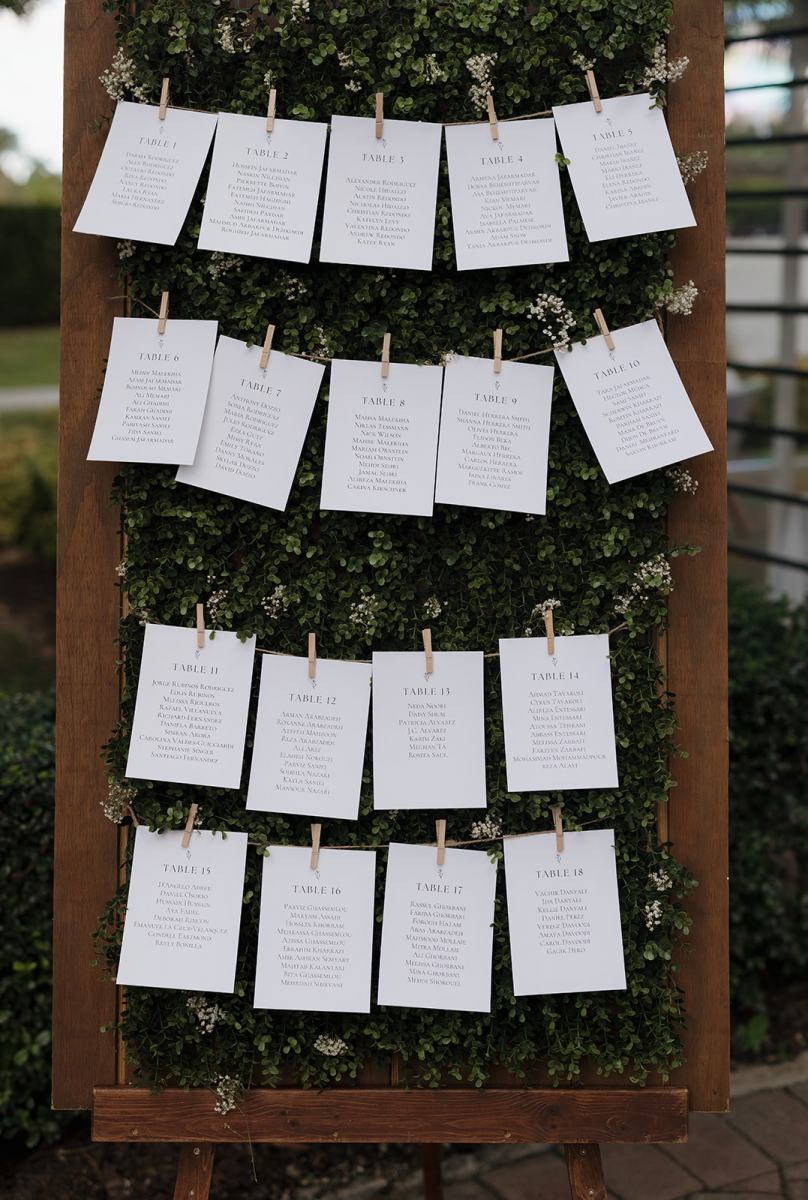 TABLE 1
RODRIGUEZ
ALEX RODRIGUEZ
REDONDO
REDONDO
NANCY REDONDO
LAURA RYAN
MARIA HERNANDEZ
REDONDO
TABLE 2
HOSSEIN JAFARMADAR
NASRIN NILCHIAN
PIERRETTE BOPYN
FATEMEH JAFARMADAR
FATEMEH HAGHIGHI
NASIM NILCHIAN
PAYDAR
AMIR JAFARMADAR
MAHMUD AKBARPUR DEHKORDI
ROGHIEH JAFARMADAR
TABLE 3
ALEXANDER RODRIGUEZ
NICOLE HIDALGO
AUSTIN REDONDO
NICHOLAS HIDALGO
CHRISTIAN REDONDO
KATELYN LEVY
VALENTINA REDONDO
ANDREW REDONDO
KATEY RYAN
TABLE 4
ARMINA JAFARMADAR
DORSA BEHESHTIPARVAR
AVA BEHESHTIPARVAR
KIAN MEMARI
NICKOL MEMARI
AVA JAFARMADAR
ISABELLA PALMESE
ARMIN AKBARPUR DEHKORDI
ADAM SNOW
TANIA AKBARPUR DEHKORDI
TABLE 5
DANIEL IBAÑEZ
CHRISTIAN IBAÑEZ
MARIA IBAÑEZ
MARIO IBAÑEZ
ELI HERRERA
ELENA REDONDO
KARINA ABADIN
JAVIER ABADIN
CHRISTINA IBAÑEZ
TABLE 6
MEHDI MEMARI
AZAM JAFARMADAR
ROMINOUSH MEMARI
ALI MEMARI
ALI GHADIRI
FARAH GHADIRI
KAMRAN SANIEI
PARVIN SANIEI
TINA SANIEI
GHASEM JAFARMADAR
TABLE 7
ANTHONY DOZIO
SONIA RODRIGUEZ
MARIA RODRIGUEZ
JULIO RODRIGUEZ
EZRA CUTE
MISSY RYAN
EMILY TORANO
DANNY MORALES
SKYLAR DOZIO
DAVID DOZIO
TABLE 8
MAHSA MALEKIHA
NIKLAS TESSMANN
NICK WILSON
MAHBE MALEKIHA
MARIAM ORNSTEIN
NOAH ORNSTEIN
MEHDI SEHRI
JAMAL SEHRI
ALIREZA MALEKIHA
CARINA KIRSCHNER
TABLE 9
DANIEL HERRERA SMITH
SHANNA HERRERA SMITH
OLIVIA HERRERA
TLIDON BEKA
ALBERTO BEC
MARGAUX HERRERA
CARLOS HERRERA
MARGUERITTE RAMOS
IRINA LINARES
FRANK GOMEZ
TABLE 10
TARA JAFARMADAR
HECTOR MUJICA
SAMI SANIEI
SCHERWIN KHARRAZI
ROMTIN KHARRAZI
PARHAM SANIEI
MAIA DE BRUYN
DION DE BRUYN
DANIEL MEHRANFARD
SAKSON KHORRAMI
TABLE 11
JORGE RUBINOS RODRIGUEZ
EDLIS RUBINOS
MELISSA RIGUEROS
RAFAEL VILLANUEVA
RICHARD FERNANDEZ
DANIELA BARRETO
SIMRAN ARORA
CAROLINA VALDES-GUICCIARDI
STEPHANIE SINGER
SANTIAGO FERNANDEZ
TABLE 12
ARMAN ARABZADEH
ROXANNE ARABZADEH
ALDITH MADISSON
REZA ARABZADEH
ALI AREF
ELAHEH NOKOUEI
PARVIZ SANIEI
SOHEILA NAZARI
KAYLA SANIEI
MANSOUR NAZARI
TABLE 13
NEDA NOORI
DAISY SHUM
PATRICIA ALVAREZ
J.C. ALVAREZ
KARIM ZAKI
MEGHAN TA
ROSITA SAUL
TABLE 14
AHMAD TAVAKOLI
CYRUS TAVAKOLI
ALIREZA ENTESSARI
MINA ENTESSARI
ALOUSSA TEHRANI
ABBASS ENTESSARI
MELISSA ZARRABI
FARZEEN ZARRABI
MOHAMMAD MOHAMMADPOUR
REZA ALAVI
TABLE 15
D'ANGELO ABREU
DANIEL OSORIO
HUSSAIN HUSSAIN
AYA FADEL
DEBORAH RINCON
EMANUEL LA CRUZ-VELASQUEZ
CONDELL EASTMOND
REILY BONILLA
TABLE 16
PARVIZ GHASSEMLOU
MARYAM ASSADI
HOSSEIN KHORRAMI
MOHASSA GHASSEMLOU
ATISSA GHASSEMLOU
EBRAHIM KHARRAZI
AMIR ASHKAN SEMYARY
MAHTAB KALANTARI
BITA GHASSEMLOU
MEHRDAD SHIRVANI
TABLE 17
RASSUL GHORBANI
FARIBA GHORBANI
FOROGH HALALI
ABAS ARABZADEH
MAHMOOD MOLLAIE
MITRA MOLLAIE
ALI GHORBANI
MELISSA GHORBANI
MINA GHORBANI
MEHDI SHOKOUEI
TABLE 18
VACHIK DANYALI
IDA DANYALI
KELLIE DANYALI
DANIEL PEREZ
VEREGE DAVOODI
AMAYA DAVOODI
CAROL DAVOODI
GAGIK DERO